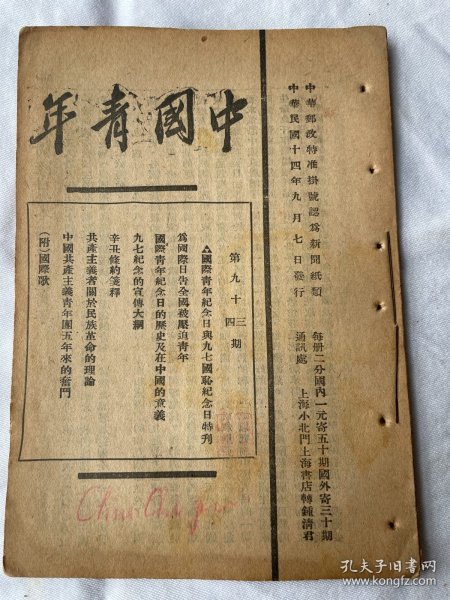 中華郵政特准掛號認爲新聞紙類
中華民國十四年九月七日發行
每册二分國內一元寄五十期國外寄三十期
通訊處　上海小北門上海書店轉鍾清君
中國青年
第九十三四期
△國際青年紀念日與九七國恥紀念日特刊
爲國際日告全國被壓迫青年
國際青年紀念日的歷史及在中國的意義
九七紀念的宣傳大綱
辛丑條約箋釋
共產主義者關於民族革命的理論
中國共產主義青年團五年來的奮鬥
(附)國際歌
孔夫子旧书网
book.kongfz.com